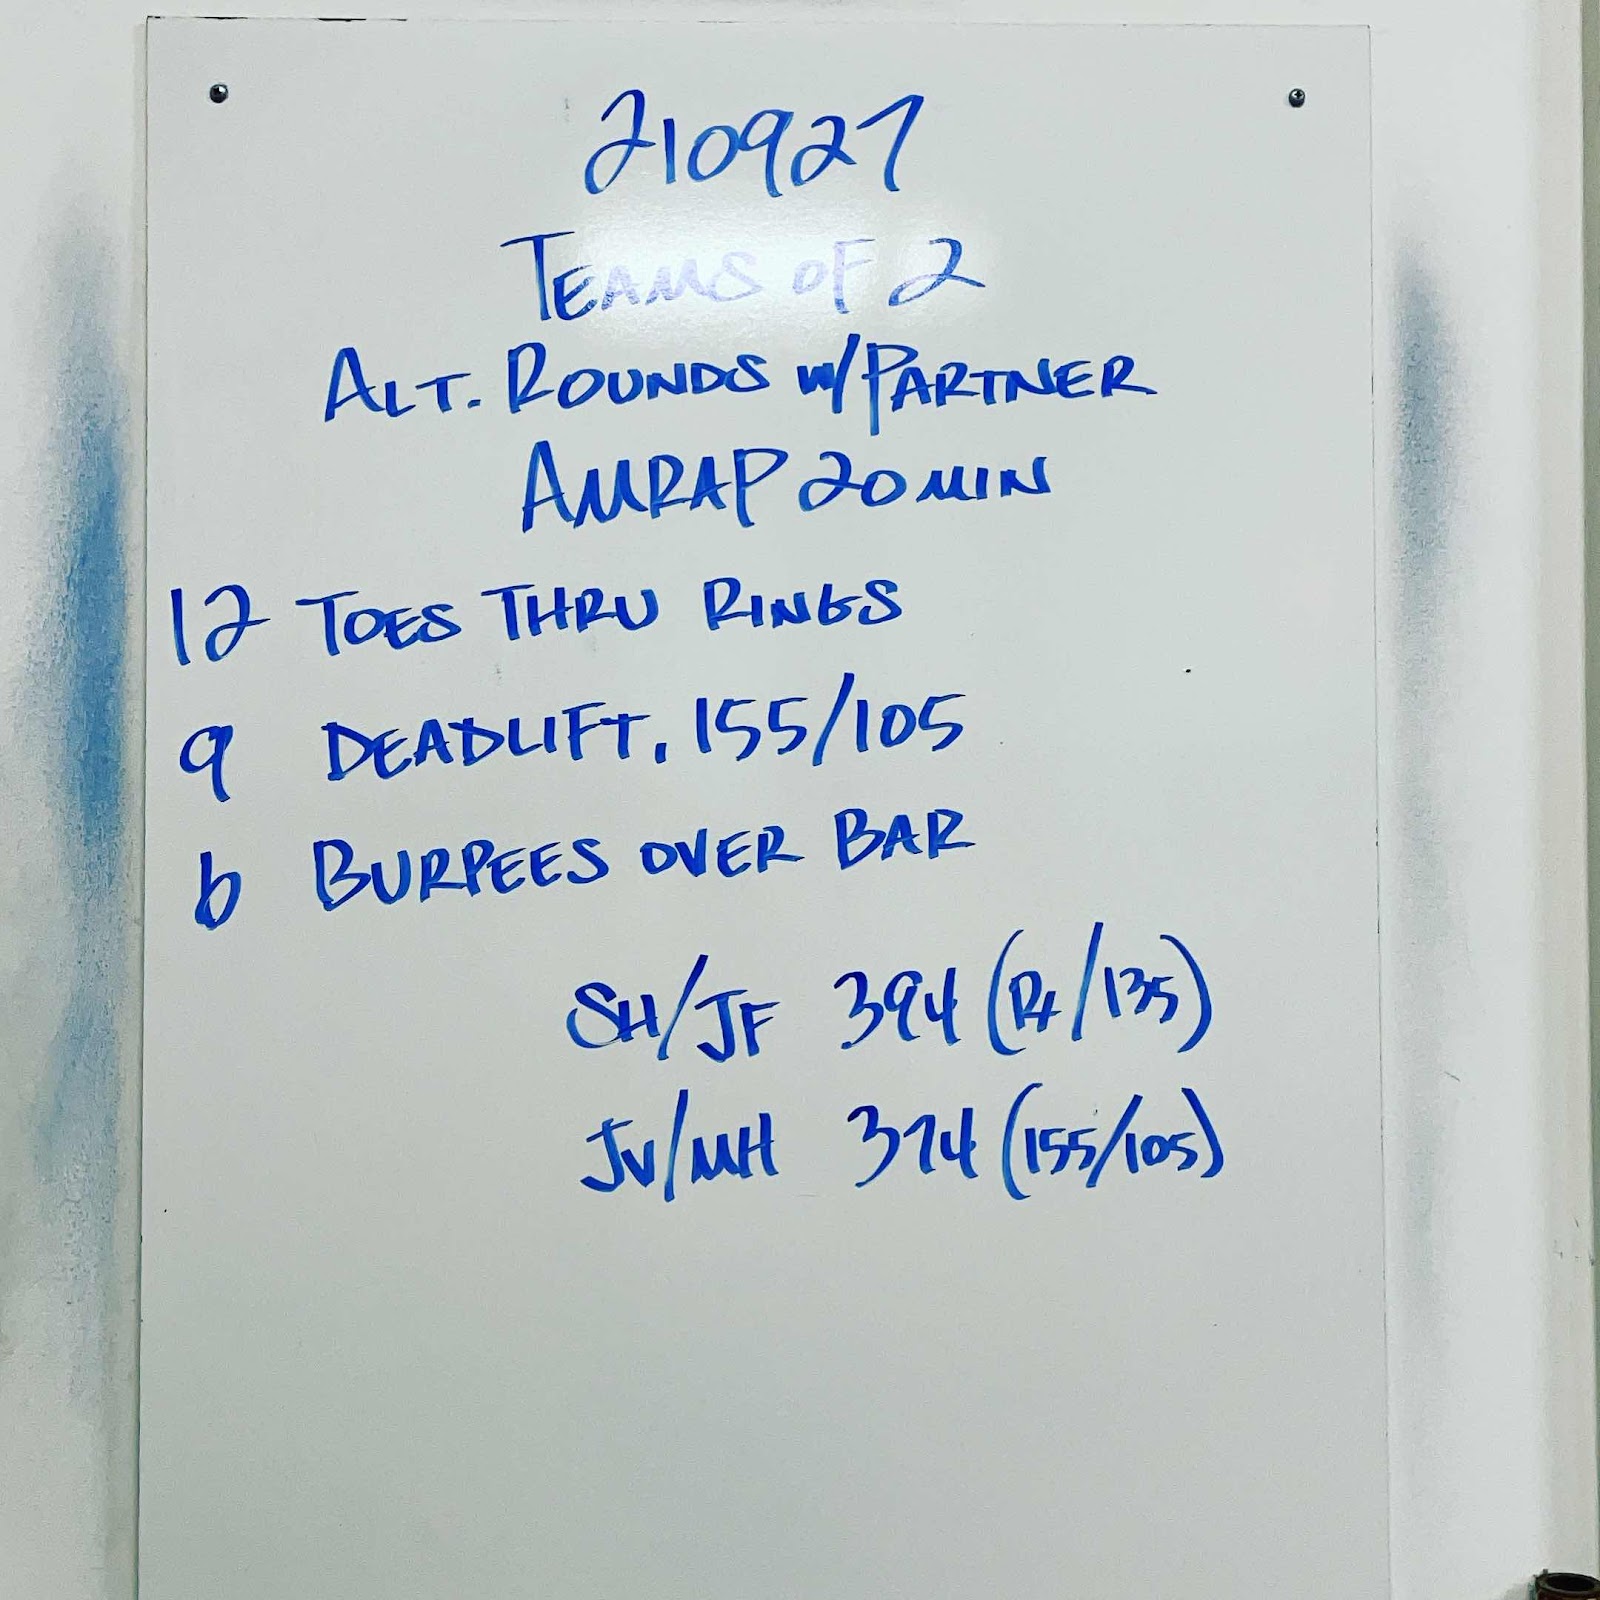 210927
TEAMS OF 2
ALT. ROUNDS w/PARTNER
AMRAP 20 MIN
12 TOES THRU RINGS
9 DEADLIFT, 155/105
6 BURPEES OVER BAR
SH/JF 394 (RX/135)
JV/MH 374 (155/105)